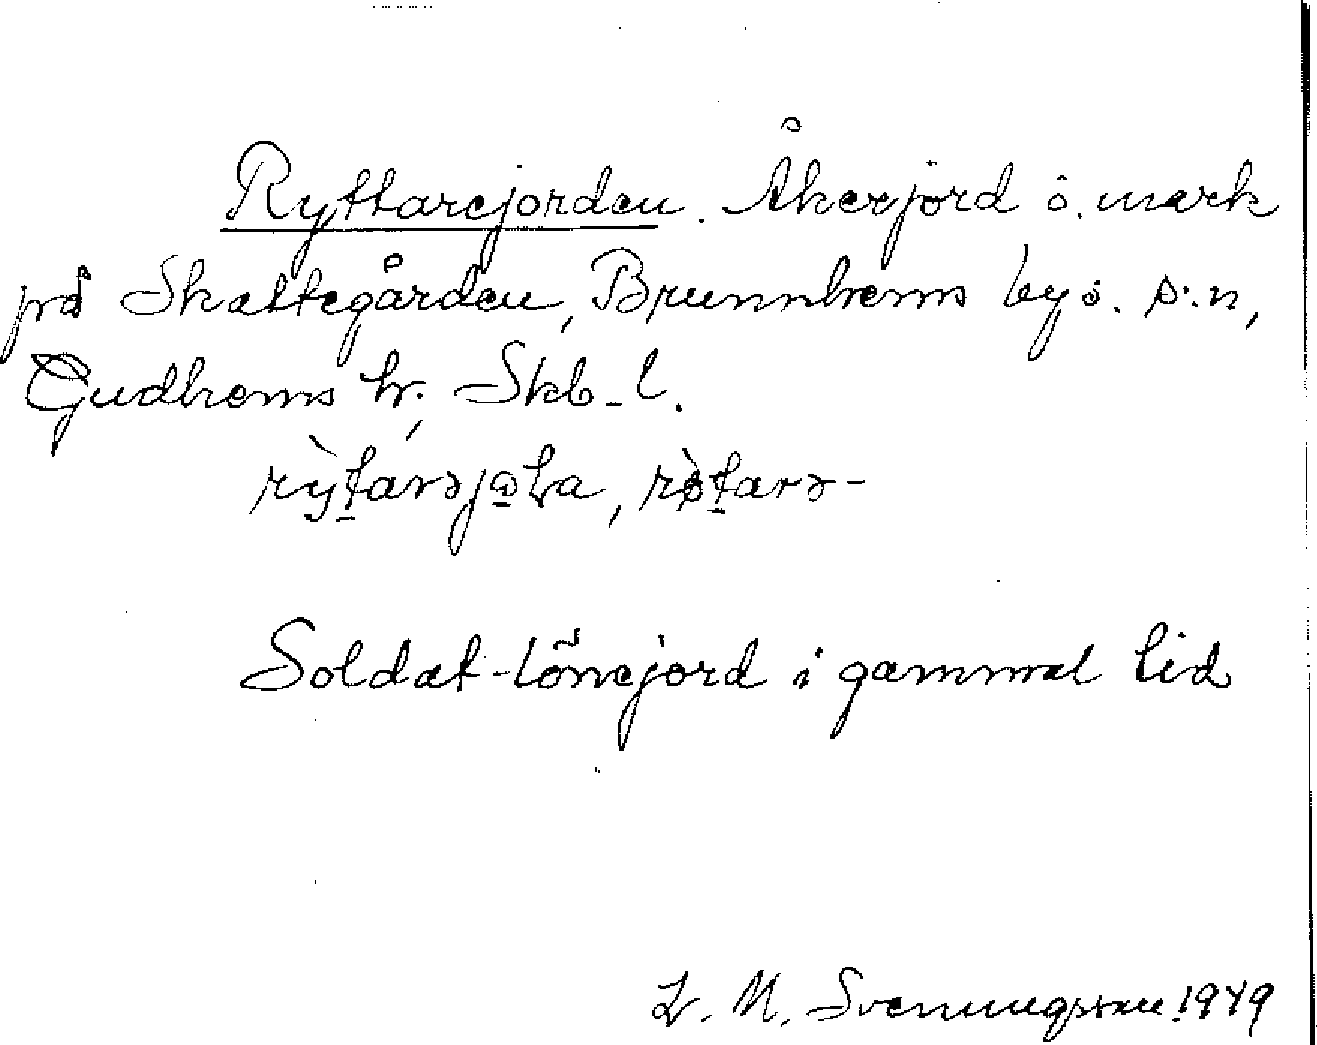 Ryttarejorden. Åkerjord ö. mark
på Skattegården, Brunnhems by o. s:n,
Gudhems hr, Skb. l.
rỳtarəjoLa, rø̀tarə-
Soldat-lönejord i gammal tid
L. M. Svenungsson 1949